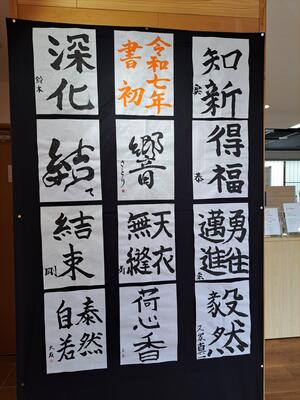 知新
令和七年
書初
深化
鈴木
得福
恭
響
さとり
結
て
勇往
邁進
天衣
無縫
結束
毅然
荷心香
泰然
自若